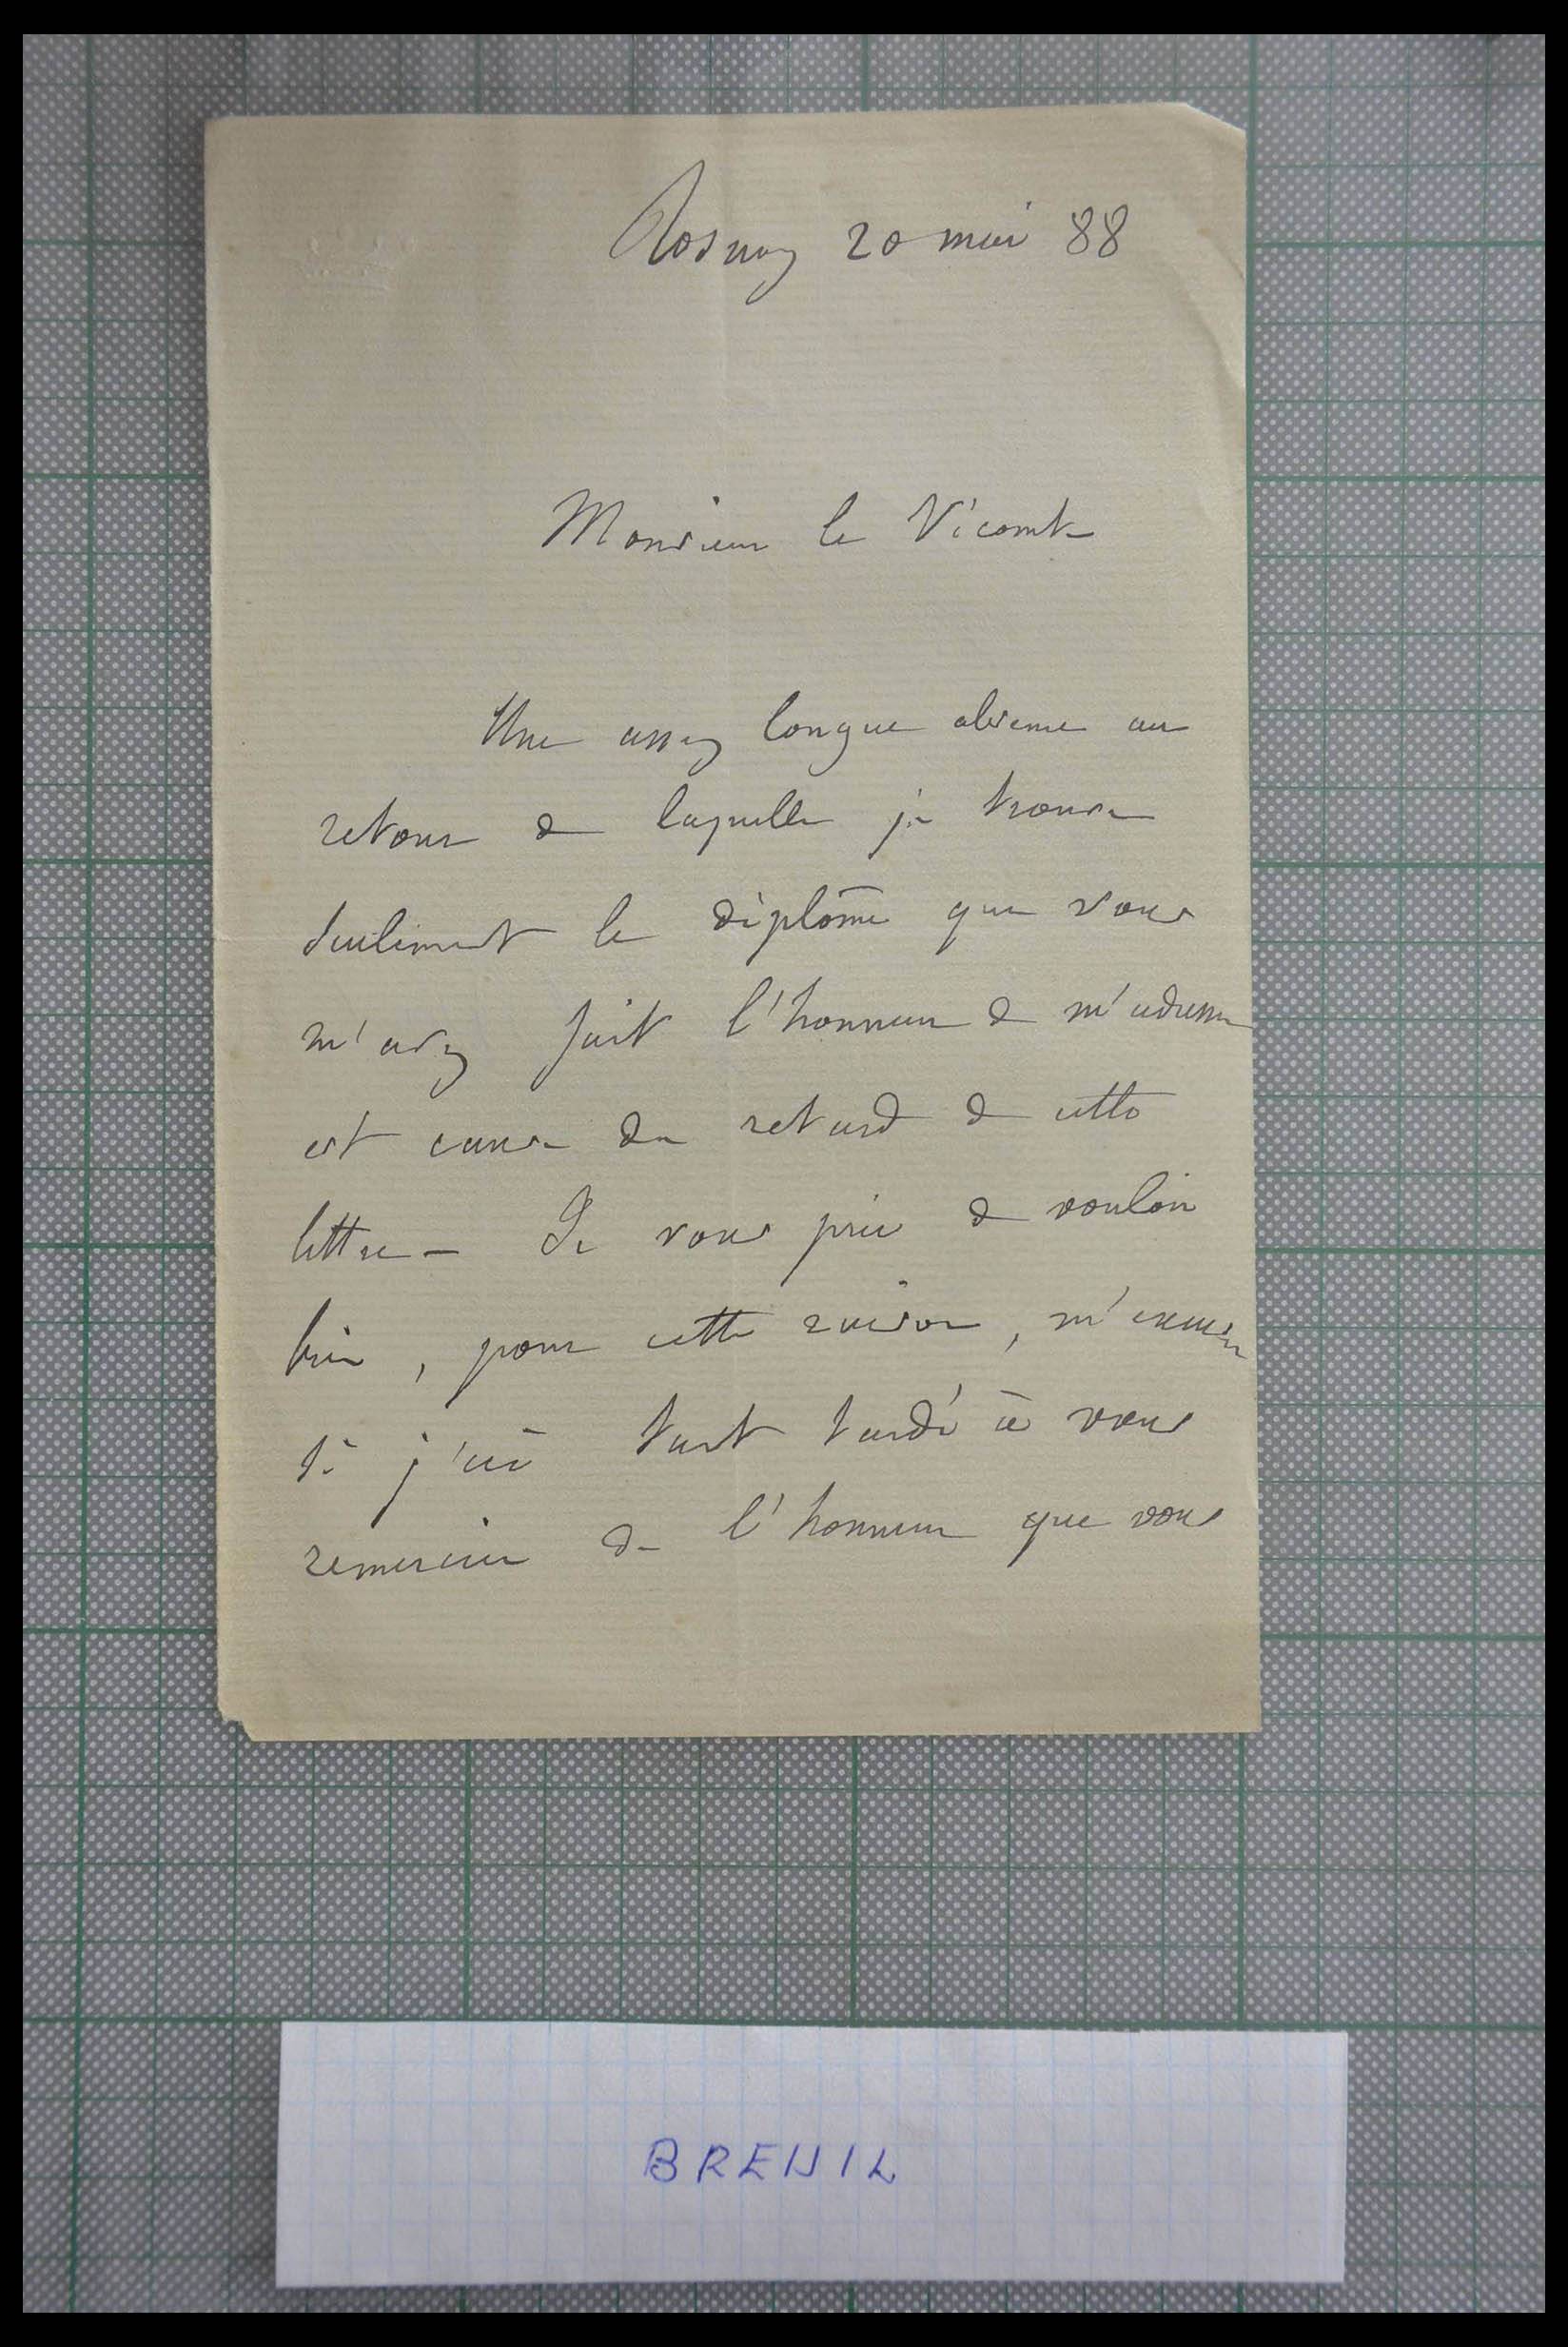 Rosnay 20 mai 88
Monsieur le Vicomte
Une assez longue absence au
retour de laquelle je trouve
seulement le diplôme que vous
m'avez fait l'honneur de m'adresser
est cause du retard de cette
lettre – Je vous prie de vouloir
bien, pour cette raison, m'excuser
si j'ai tant tardé à vous
remercier de l'honneur que vous
BREUIL